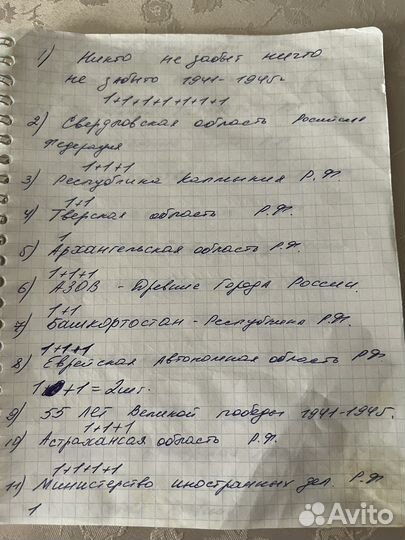 1) Никто не забыт ничто
не збыто 1941-1945г
1+1+1+1+1+1+1
2) Свердловская область Росийские
Федерация
1+1+1
3) Республика Калмыкия Р.Ф.
1+1
4) Тверская область Р.Ф.
1
5) Архангельская область Р.Ф.
1+1+1
6) АЗОВ - Древние Города России.
1+1
7) Башкортостан - Республика Р.Ф.
1+1+1
8) Еврейская Автономная область РФ
1+1=2шт.
9) 55 лет Великой победы 1941-1945г.
1+1+1
10) Астрахансая область Р.Ф.
1+1+1+1
11) Министерство иностранных дел. Р.Ф
1
Avito